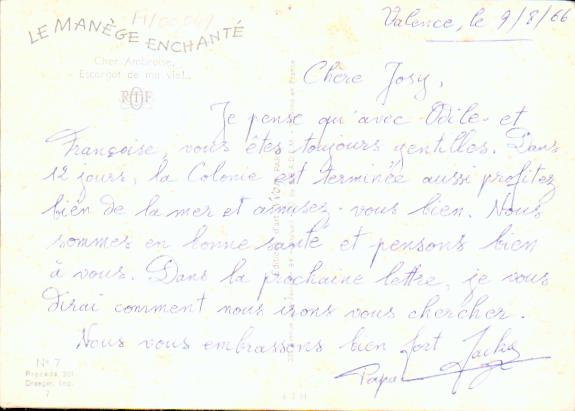 LE MANÈGE ENCHANTÉ
Cher Ambroise,
Escargot de ma vie!..
RTF
Valence, le 9/8/66
Chère Josy,
Je pense qu'avec Odile et
Françoise, vous êtes toujours gentilles. Dans
12 jours, la Colonie est terminée aussi profitez
bien de la mer et amusez-vous bien. Nous
sommes en bonne santé et pensons bien
à vous. Dans la prochaine lettre, je vous
dirai comment nous irons vous chercher.
Nous vous embrassons bien fort
Papa
N° 7
Draeger, Imp.